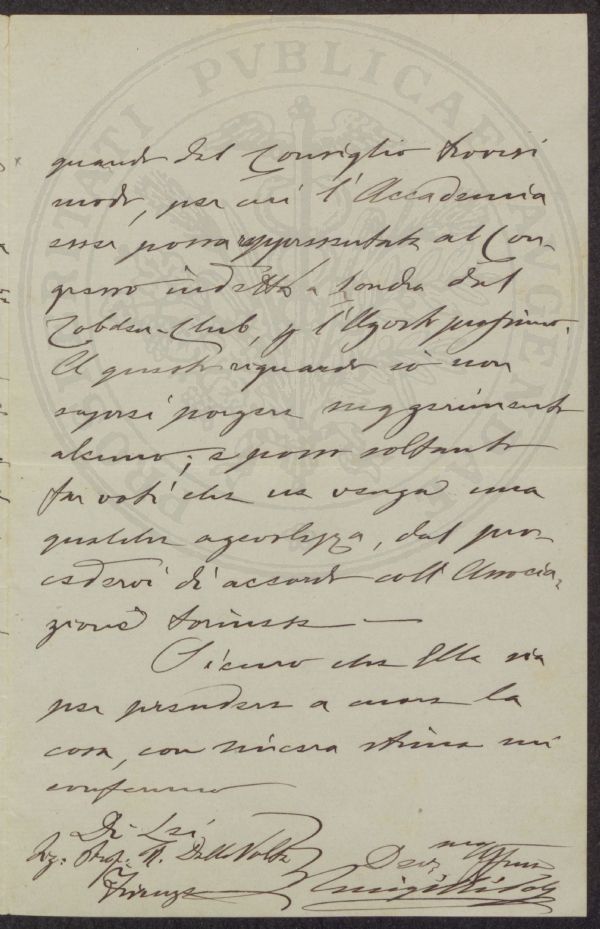 quando dal Consiglio trovisi
modo, per cui l'Accademia
essa possa rappresentata al Con-
gresso indetto a Londra dal
Cobden-Club, pr l'Agosto prossimo.
A questo riguardo io non
saprei porgere suggerimento
alcuno; e posso soltanto
far voti che ne venga una
qualche agevolezza, dal pro-
cedervi di accordo coll'Associa-
zione torinese —
Sicuro che Ella sia
per prendere a cuore la
cosa, con sincera stima mi
confermo
Di Lei,
Prof. R. Dalla Volta
Firenze
Dev.mo
Luigi
PROSPERITATI PVBLICAE AVGENDAE